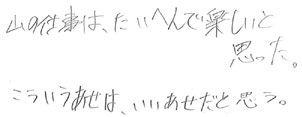 山の仕事は、たいへんで楽しいと
思った。
こういうあせは、いいあせだと思う。